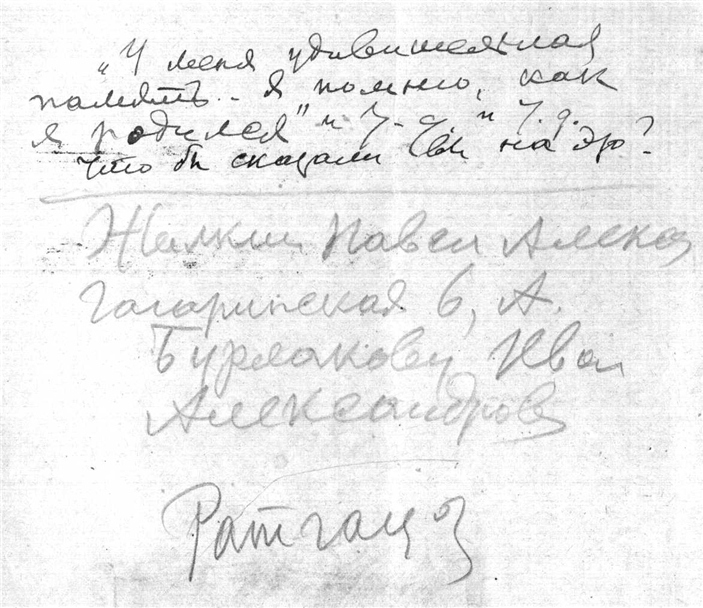 „У меня удивительная
память - я помню, как
я родился" и т. д. и т. д.
что бы сказали Вы на это?
Жилкин Павел Алекс
Гагаринская 6, А.
Бурлакову Иван
Александров
Ратгауз